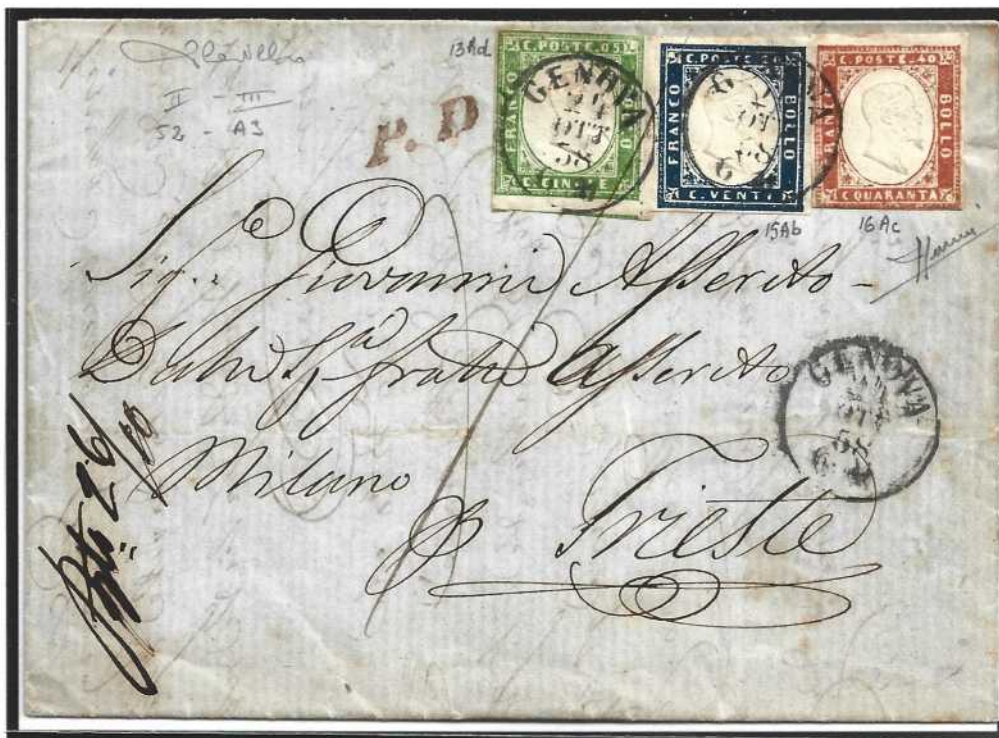 13Ad
II - III
52 - A3
P. D
C. POSTE. 05
FRANCO
BOLLO
C. CINQUE
GENOVA
OTT
58
C. POSTE. 20
FRANCO
BOLLO
C. VENTI
OTT
58
C. POSTE. 40
FRANCO
BOLLO
C. QUARANTA
15Ab
16Ac
Sig.: Giovanni Assereto -
fratli Assereto
Milano
p Trieste
GENOVA
OTT
58
26/10